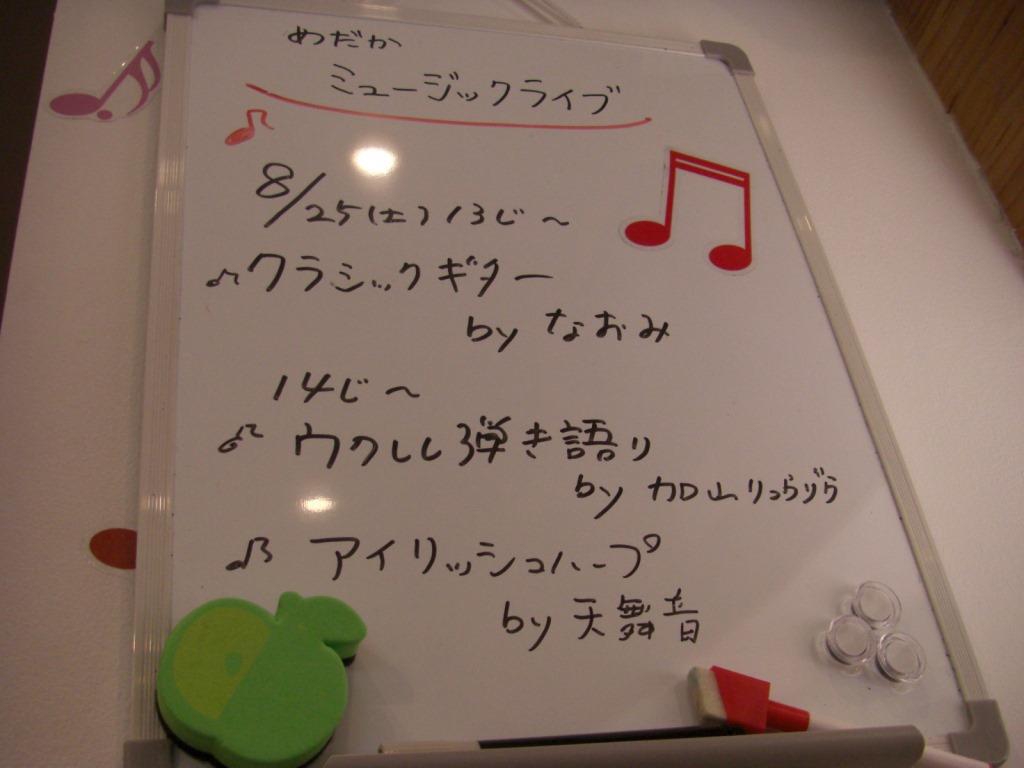 めだか
ミュージックライブ
8/25(土)13じ～
♪クラシックギター
by なおみ
14じ～
♪ウクレレ弾き語り
by 加山りっらぢら
♪アイリッシュハープ
by 天舞音